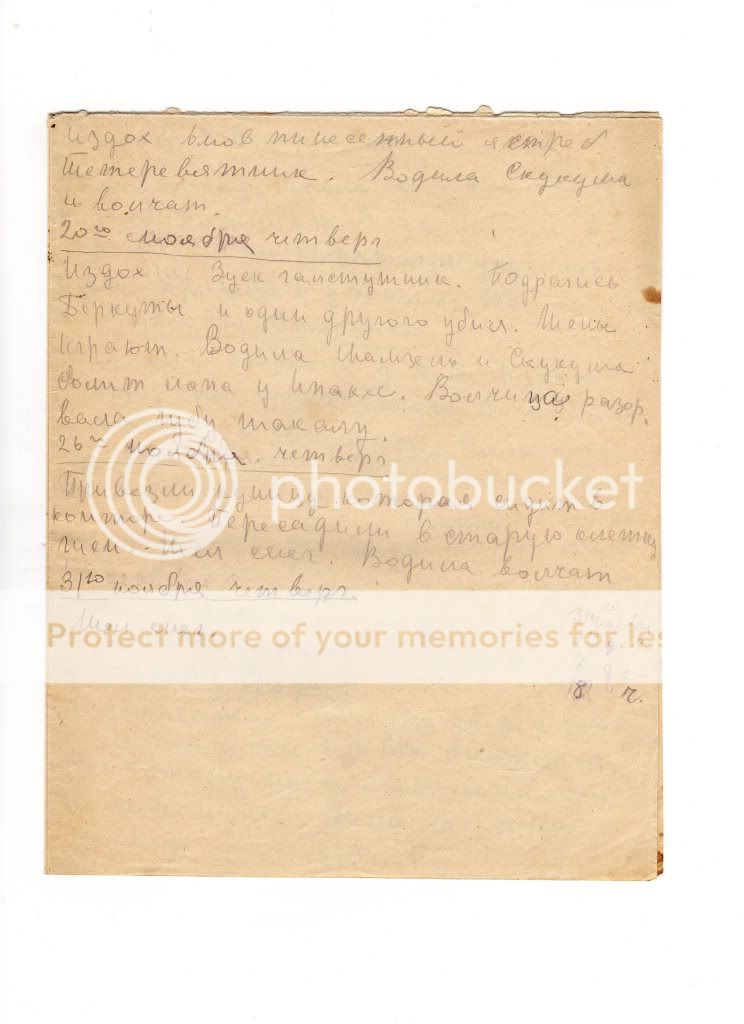 Издох вновь пинесенный ястреб
Тетеревятник. Водила Скукума
и волчат.
20го ноября четверг
Издох Зуек галстушник. Подрались
Беркуты и один другого убил. Щены
играют. Водила и Скукума
болит лапа у Волчица разор.
вала губу шакалу.
26го ноября. четверг
Привезли куницу которая сидит в
конторе. Пересадили в старую клетку
Шел снег. Водила волчат
31го ноября четверг.
Шел снег.
8 ч.
photobucket
Protect more of your memories for les